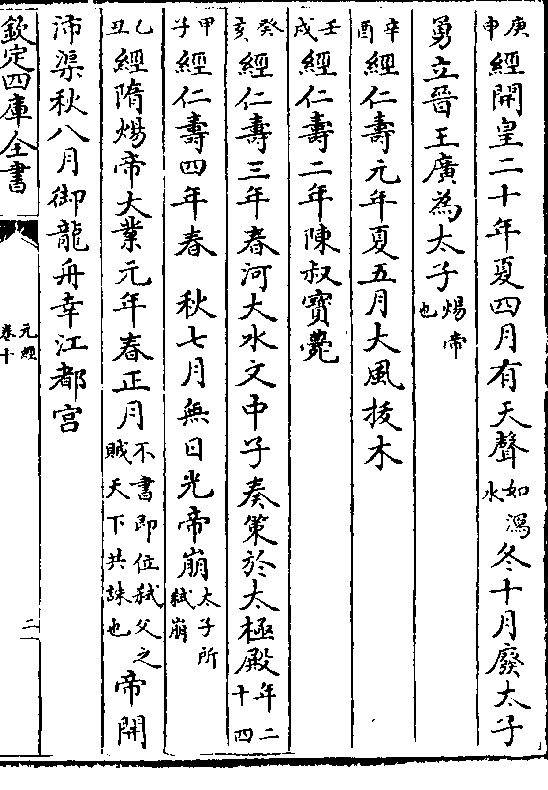 庚申經開皇二十年夏四月有天聲如瀉水冬十月廢太子
勇立晉王廣為太子煬帝也
辛酉經仁壽元年夏五月大風拔木
壬戌經仁壽二年陳叔寶薨
癸亥經仁壽三年春河大水文中子奏策於太極殿年二十四
甲子經仁壽四年春 秋七月無日光帝崩太子所弑崩
乙丑經隋煬帝大業元年春正月不書即位弑父之賊天下共誅也帝開
沛渠秋八月御龍舟幸江都宮
欽定四庫全書
元經
卷十
二